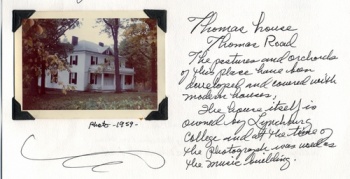 Thomas house
Thomas Road
The pastures and orchards
of this place have been
developed and covered with
modern houses.
The house itself is
owned by Lynchburg
College and at the time of
the photograph was used as
the music building.
Photo -1959-